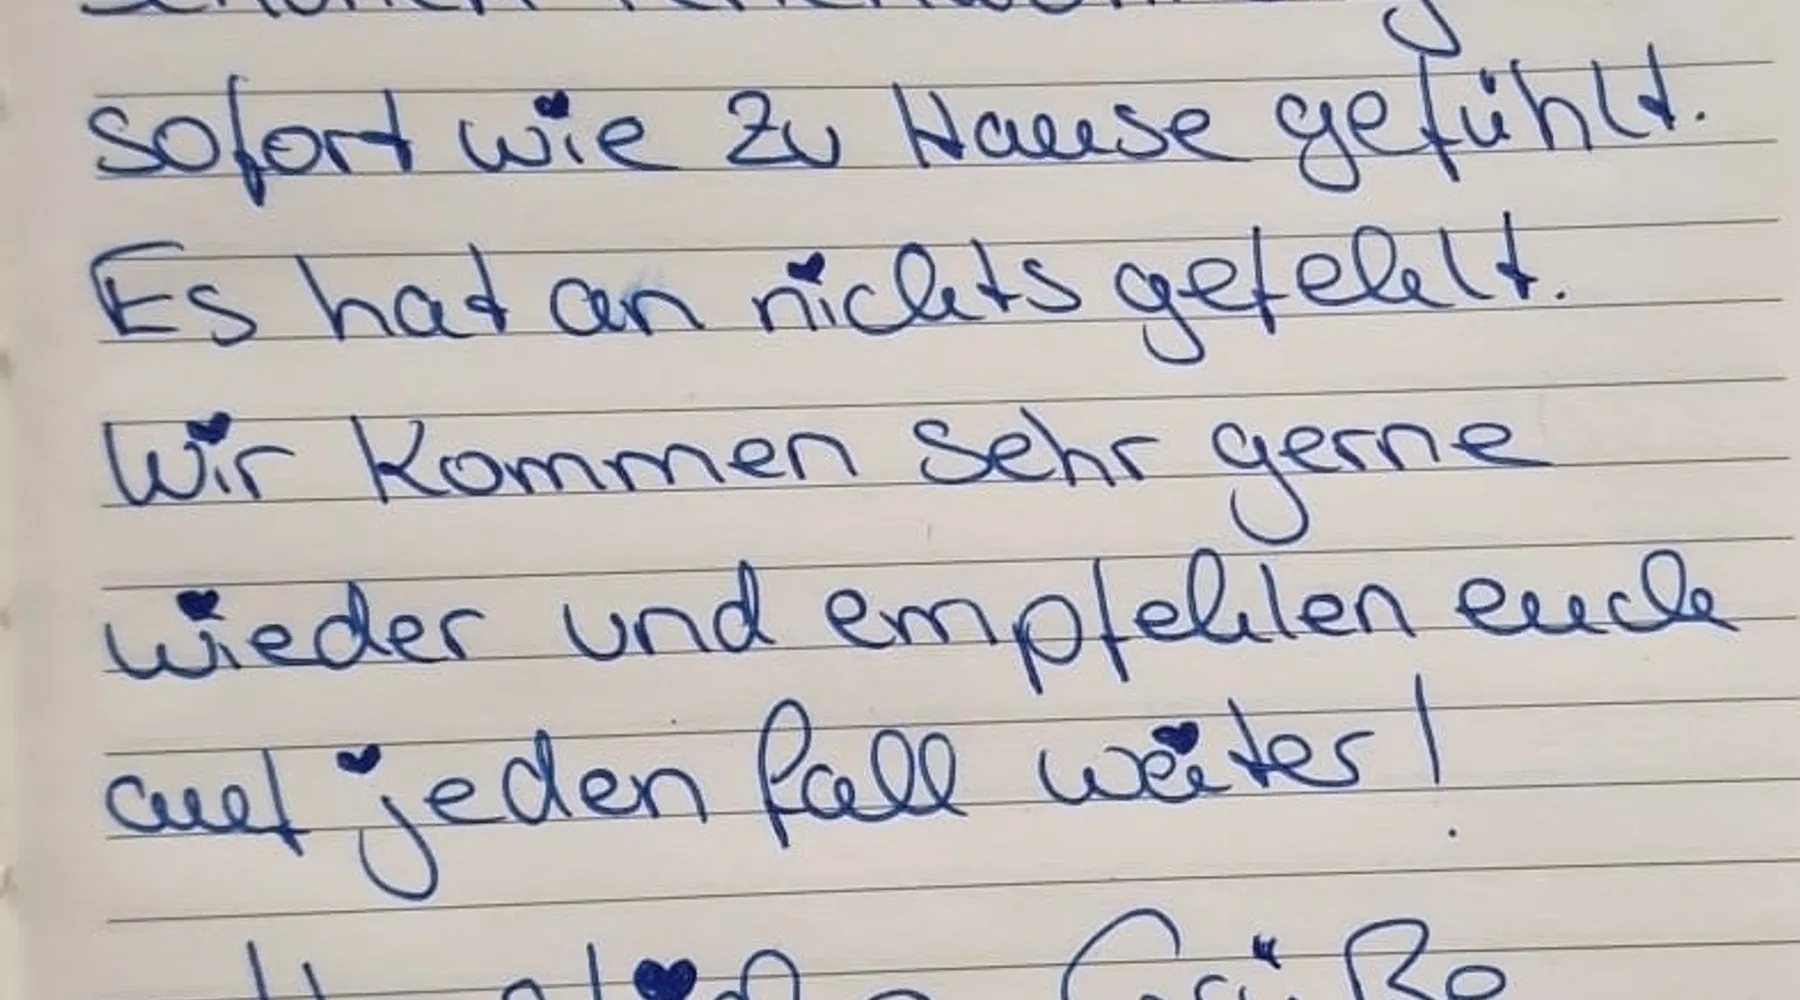 schönen Ferienwohnung
sofort wie zu Hause gefühlt.
Es hat an nichts gefehlt.
Wir kommen sehr gerne
wieder und empfehlen euch
auf jeden fall weiter!
Grüße